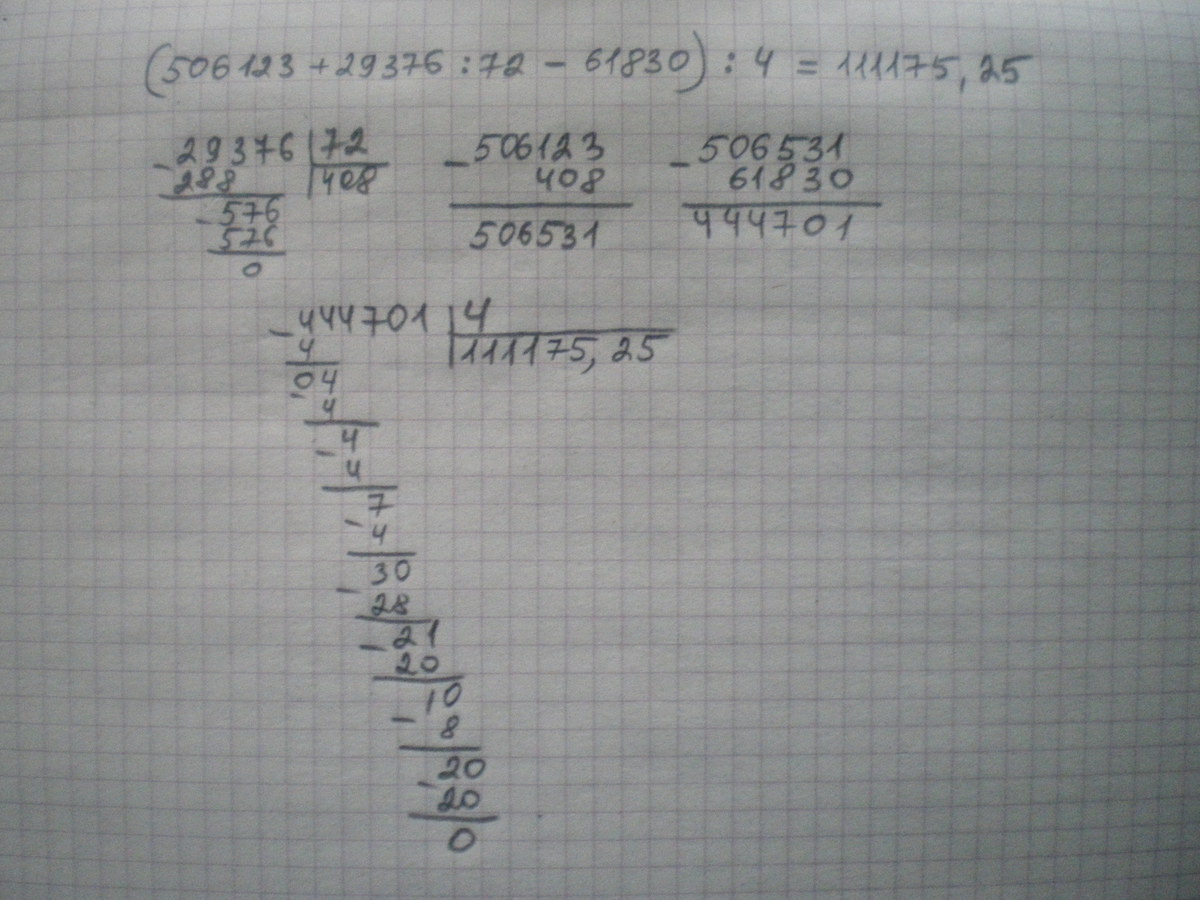 (506123 + 29376 : 72 - 61830) : 4 = 111175, 25
- 29376 | 72
288 | 408
- 576
576
0
- 506123
408
506531
- 506531
61830
444701
- 444701 | 4
4 | 111175, 25
- 04
4
- 4
4
- 7
4
- 30
28
- 21
20
- 10
8
- 20
20
0